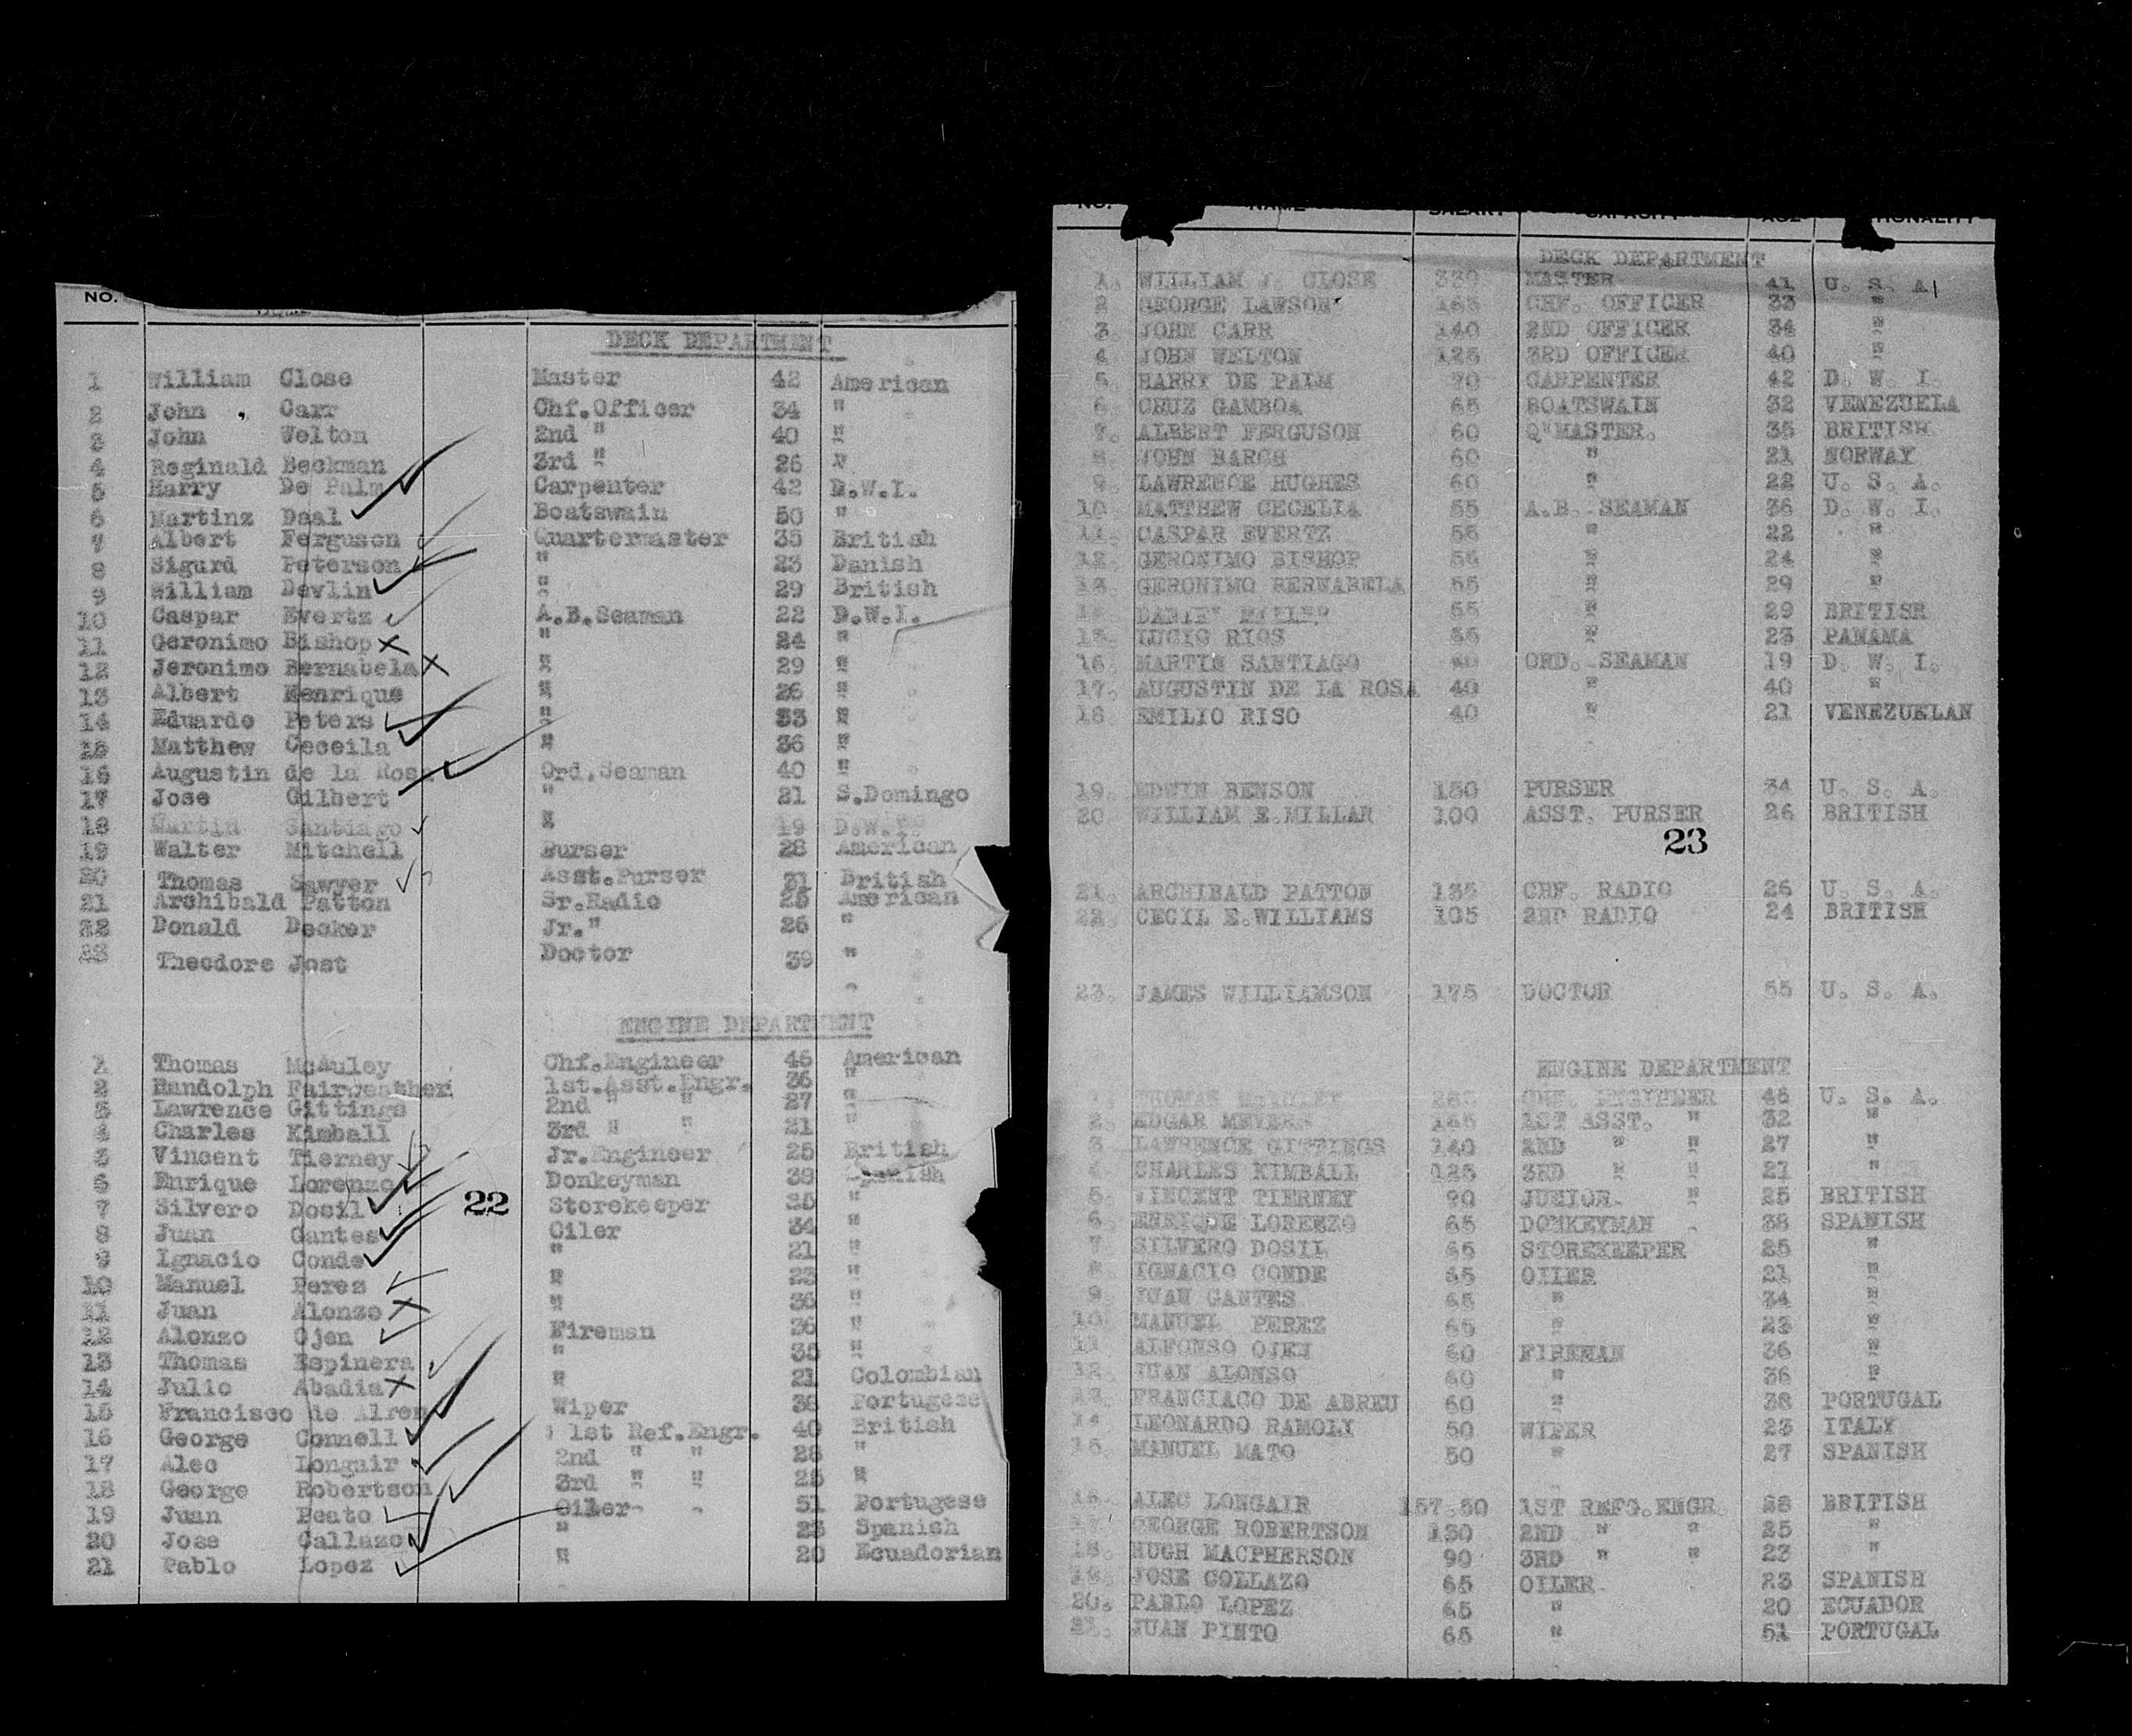 NO.
DECK DEPARTMENT
1 William Close Master 42 American
2 John Carr Chf.Officer 34 "
3 John Welton 2nd " 40 "
4 Reginald Beckman 3rd " 26 "
5 Harry De Palm Carpenter 42 D.W.I.
6 Martinz Daal Boatswain 50 "
7 Albert Ferguson Quartermaster 35 British
8 Sigurd Peterson " 23 Danish
9 William Devlin " 29 British
10 Caspar Evertz A.B.Seaman 22 D.W.I.
11 Geronimo Bishop " 24 "
12 Jeronimo Bernabela " 29 "
13 Albert Henrique " 26 "
14 Eduardo Peters " 33 "
15 Matthew Ceceila " 36 "
16 Augustin de la Rosa Ord.Seaman 40 "
17 Jose Gilbert " 21 S.Domingo
18 Martin Santiago " 19 D.W.I.
19 Walter Mitchell Purser 28 American
20 Thomas Sawyer Asst.Purser 21 British
21 Archibald Patton Sr.Radio 25 American
22 Donald Decker Jr." 26 "
23 Theodore Jost Doctor 39 "
ENGINE DEPARTMENT
1 Thomas McAuley Chf.Engineer 46 American
2 Randolph Fairweather 1st.Asst.Engr. 36 "
3 Lawrence Gittings 2nd " " 27 "
4 Charles Kimball 3rd " " 21 "
5 Vincent Tierney Jr.Engineer 25 British
6 Enrique Lorenzo Donkeyman 38 Spanish
7 Silvero Dosil Storekeeper 25 "
22
8 Juan Gantes Oiler 34 "
9 Ignacio Conde " 21 "
10 Manuel Perez " 23 "
11 Juan Alonzo " 36 "
12 Alonzo Ojen Fireman 36 "
13 Thomas Espinera " 35 "
14 Julio Abadia " 21 Colombian
15 Francisco de Alreu Wiper 38 Portugese
16 George Connell 1st Ref.Engr. 40 British
17 Alec Longair 2nd " " 28 "
18 George Robertson 3rd " " 25 "
19 Juan Peato Oiler 51 Portugese
20 Jose Callazo " 23 Spanish
21 Pablo Lopez " 20 Ecuadorian
NO. NAME SALARY CAPACITY AGE
DECK DEPARTMENT
1. WILLIAM J. CLOSE MASTER 41 U. S. A.
2 GEORGE LAWSON 165 CHF. OFFICER 33 "
3. JOHN CARR 140 2ND OFFICER 34 "
4. JOHN WELTON 125 3RD OFFICER 40 "
5. HARRY DE PALM 70 CARPENTER 42 D. W. I.
6. CRUZ GAMBOA 65 BOATSWAIN 32 VENEZUELA
7. ALBERT FERGUSON 60 Q"MASTER. 35 BRITISH
8. JOHN BARCH 60 " 21 NORWAY
9. LAWRENCE HUGHES 60 " 22 U. S. A.
10. MATTHEW CECELIA 55 A.B. SEAMAN 36 D. W. I.
11. CASPAR EVERTZ 55 " 22 "
12. GERONIMO BISHOP 55 " 24 "
13. GERONIMO BERNABELA 55 " 29 "
14. 55 " 29 BRITISH
15. LUCIO RIOS 55 " 23 PANAMA
16. MARTIN SANTIAGO 40 ORD. SEAMAN 19 D. W. I.
17. AUGUSTIN DE LA ROSA 40 " 40 "
18. EMILIO RISO 40 " 21 VENEZUELAN
19. EDWIN BENSON 150 PURSER 34 U. S. A.
20 WILLIAM E.MILLAR 100 ASST. PURSER 26 BRITISH
23
21. ARCHIBALD PATTON 135 CHF. RADIO 26 U. S. A.
22. CECIL E.WILLIAMS 105 2ND RADIO 24 BRITISH
23. JAMES WILLIAMSON 175 DOCTOR 55 U. S. A.
ENGINE DEPARTMENT
1. THOMAS CHF. ENGINEER 46 U. S. A.
2. EDGAR MEYERS 165 1ST ASST. " 32 "
3 LAWRENCE GITTINGS 140 2ND " " 27 "
4 CHARLES KIMBALL 125 3RD " " 21 "
5. VINCENT TIERNEY 90 JUNIOR. " 25 BRITISH
6. ENRIQUE LORENZO 65 DONKEYMAN 38 SPANISH
7 SILVERO DOSIL 65 STOREKEEPER 25 "
8 IGNACIO CONDE 65 OILER 21 "
9. JUAN GANTES 65 " 34 "
10. MANUEL PEREZ 65 " 23 "
11. ALFONSO OJEN 60 FIREMAN 36 "
12. JUAN ALONSO 60 " 36 "
13. FRANCIACO DE ABREU 60 " 38 PORTUGAL
14. LEONARDO RAMOLI 50 WIPER 23 ITALY
15. MANUEL MATO 50 " 27 SPANISH
16. ALEC LONGAIR 157.50 1ST REFG.ENGR. 28 BRITISH
17. GEORGE ROBERTSON 130 2ND " " 25 "
18. HUGH MACPHERSON 90 3RD " " 23 "
19. JOSE COLLAZO 65 OILER 23 SPANISH
20. PABLO LOPEZ 65 " 20 ECUADOR
21. JUAN PINTO 65 " 51 PORTUGAL